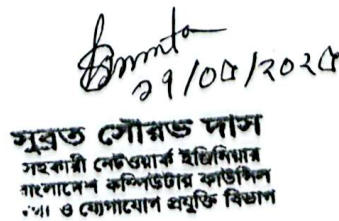 ২৭/০৫/২০২৫
সুব্রত সৌরভ দাস
সহকারী নেটওয়ার্ক ইঞ্জিনিয়ার
বাংলাদেশ কম্পিউটার কাউন্সিল
ও যোগাযোগ প্রযুক্তি বিভাগ